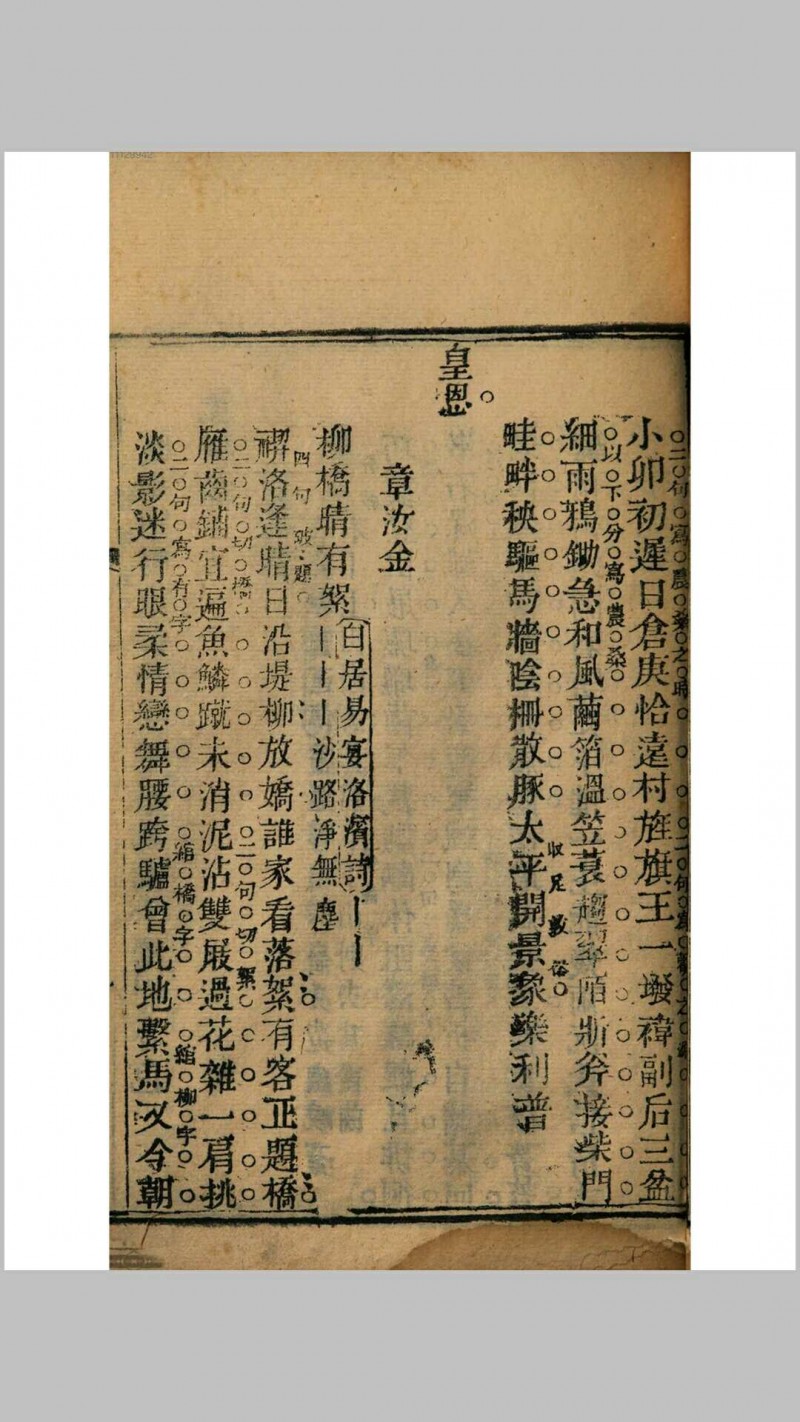 小卯初遲日倉庚恰遶村旌旗王一墢褘副后三盆
二句寫農桑之時
細雨鴉鋤急和風繭箔溫笠蓑趨陌斨斧接柴門
以下分寫農桑
畦畔秧驅馬牆陰柵散豚太平開景象樂利普
收足數俗
皇恩
章汝金
柳橋晴有絮白居易宴洛濱詩｜｜｜｜｜沙路淨無塵
禊洛逢晴日沿堤柳放嬌誰家看落絮有客正題橋
四句破題
雁齒鋪宜遍魚鱗蹴未消泥沾雙屐過花雜一肩挑
二句切橋
二句切絮
淡影迷行眼柔情戀舞腰跨驢曾此地繫馬又今朝
二句寫有字
綰橋字
綰柳字